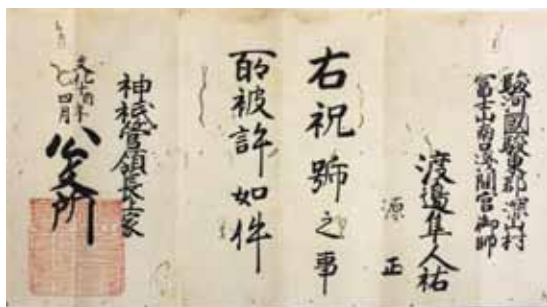 駿河國駿東郡深山村
冨士山南口淺間宮御師
渡邉隼人祐
源正
右祝号之事
所被許如件
神祇管領長上家
文化十四年
四月
公文所